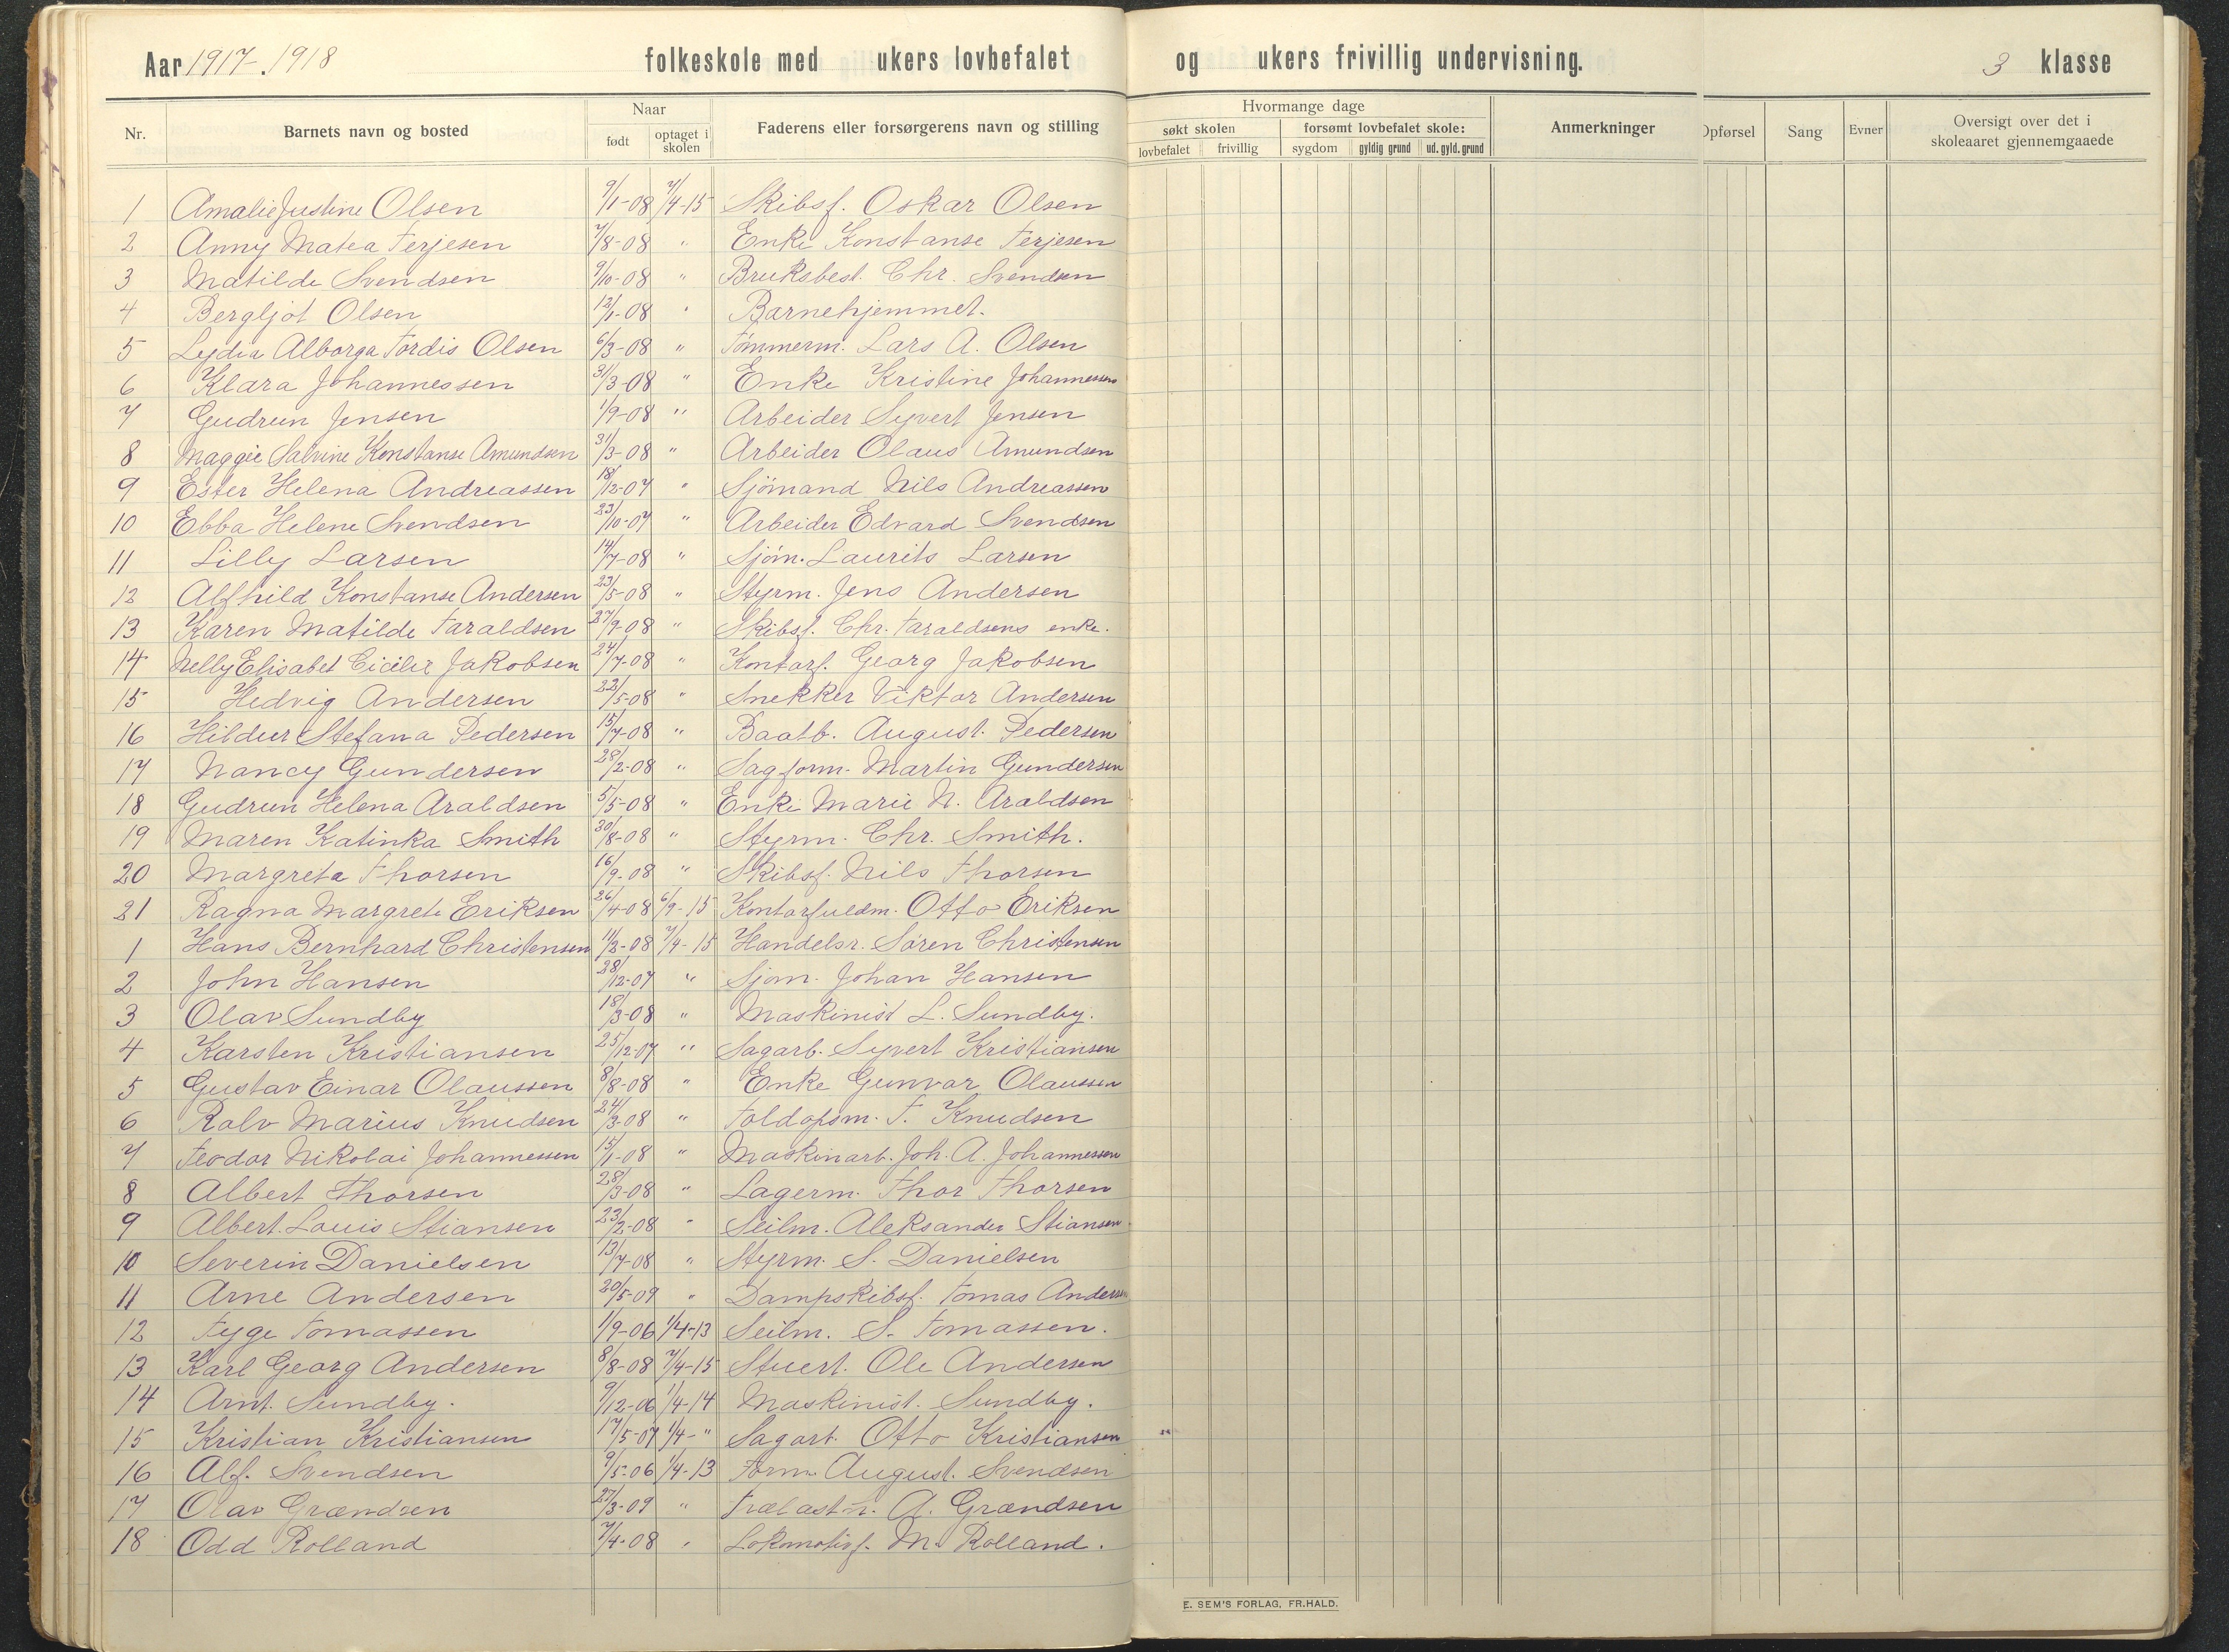 Aar 1917-1918 folkeskole med ukers lovbefalet og ukers frivillig undervisning. 3 klasse
Nr. Barnets navn og bosted Naar født optaget i skolen Faderens eller forsørgerens navn og stilling Hvormange dage søkt skolen lovbefalet frivillig forsømt lovbefalet skole: sygdom gyldig grund ud. gyld. grund Anmerkninger Opførsel Sang Evner Oversigt over det i skoleaaret gjennemgaaede
1 Amalie Justine Olsen 9/1-08 7/4-15 Skibsf. Oskar Olsen
2 Anny Matea Terjesen 7/8-08 " Enke Konstanse Terjesen
3 Matilde Svendsen 9/10-08 " Bruksbest. Chr. Svendsen
4 Bergljot Olsen 12/1-08 " Barnehjemmet.
5 Lydia Alborga Tordis Olsen 6/3-08 " Tømmerm. Lars A. Olsen
6 Klara Johannessen 31/3-08 " Enke Kristine Johannessen
7 Gudrun Jensen 1/9-08 " Arbeider Syvert Jensen
8 Maggie Salvine Konstanse Amundsen 31/3-08 " Arbeider Olaus Amundsen
9 Ester Helena Andreassen 18/12-07 " Sjömand Nils Andreassen
10 Ebba Helene Svendsen 23/10-07 " Arbeider Edvard Svendsen
11 Lilly Larsen 14/7-08 " Sjöm. Laurits Larsen
12 Alfhild Konstanse Andersen 23/5-08 " Styrm. Jens Andersen
13 Karen Matilde Taraldsen 27/9-08 " Skibsf. Chr. Taraldsens enke.
14 Nelly Elisabet Cicilie Jakobsen 24/7-08 " Kontorf. Georg Jakobsen
15 Hedvig Andersen 22/5-08 " Snekker Viktor Andersen
16 Hildur Stefana Pedersen 15/7-08 " Baatb. August Pedersen
17 Nancy Gundersen 28/2-08 " Sagform. Martin Gundersen
18 Gudrun Helena Araldsen 5/5-08 " Enke Marie N. Araldsen
19 Maren Katinka Smith 30/8-08 " Styrm. Chr. Smith.
20 Margreta Thorsen 16/9-08 " Skibsf. Nils Thorsen
21 Ragna Margrete Eriksen 26/4-08 6/9-15 Kontorfuldm. Otto Eriksen
1 Hans Bernhard Christensen 11/2-08 7/4-15 Handelsr. Sören Christensen
2 John Hansen 28/12-07 " Sjöm. Johan Hansen
3 Olav Sundby 18/3-08 " Maskinist L. Sundby.
4 Karsten Kristiansen 25/12-07 " Sagarb. Syvert Kristiansen
5 Gustav Einar Olaussen 8/8-08 " Enke Gunvor Olaussen
6 Rolv Marius Knudsen 24/3-08 " Toldopsm. T. Knudsen
7 Teodor Nikolai Johannessen 15/1-08 " Maskinarb. Joh. A. Johannessen
8 Albert Thorsen 28/3-08 " Lagerm. Thor Thorsen
9 Albert Louis Stiansen 23/2-08 " Seilm. Aleksander Stiansen
10 Severin Danielsen 13/7-08 " Styrm. S. Danielsen
11 Arne Andersen 20/5-09 " Dampskibsf. Tomas Andersen
12 Tyge Tomassen 1/9-06 1/4-13 Seilm. S. Tomassen.
13 Karl Georg Andersen 8/8-08 7/4-15 Stuert. Ole Andersen
14 Arnt. Sundby. 9/12-06 1/4-14 Maskinist. Sundby.
15 Kristian Kristiansen 17/5-07 1/4-" Sagarb. Otto Kristiansen
16 Alf. Svendsen 9/5-06 1/4-13 Form. August. Svendsen
17 Olav Grændsen 27/3-09 " Trælast-r. A. Grændsen
18 Odd Rolland 7/4-08 " Lokomotivf. M. Rolland.
E. SEM'S FORLAG, FR.HALD.